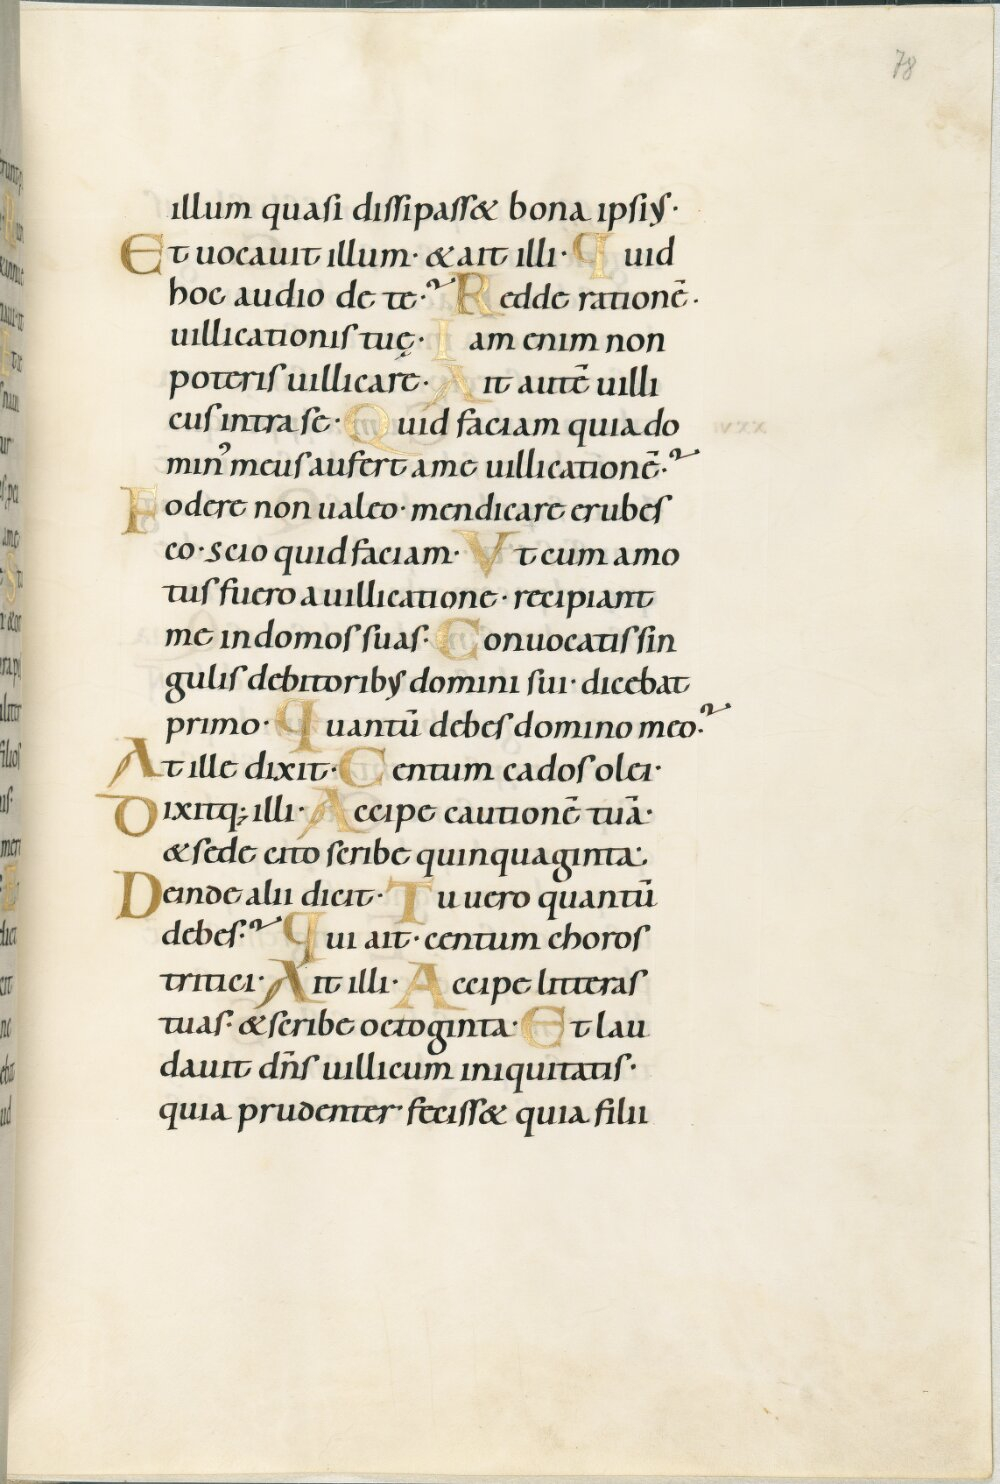 78
illum quasi dissipass& bona ipsiꝰ·
Et uocauit illum· & ait illi· Quid
hoc audio de te·? Redde rationē·
uillicationis tuę· Iam enim non
poteris uillicare· Ait autē uilli
cus intra se· Quid faciam quia do
min' meus aufert a me uillicationē·?
Fodere non ualeo· mendicare erubes
co· scio quid faciam· Vt cum amo
tus fuero a uillicatione· recipiant
me in domos suas· Conuocatis sin
gulis debitoribꝰ domini sui· dicebat
primo· Quantū debes domino meo·?
At ille dixit· Centum cados olei·
Dixitq; illi· Accipe cautionē tuā·
& sede cito scribe quinquaginta·
Deinde alii dicit· Tu uero quantū
debes·? Qui ait· centum choros
tritici· Ait illi· Accipe litteras
tuas· & scribe octoginta· Et lau
dauit dn̄s uillicum iniquitatis·
quia prudenter feciss& quia filii